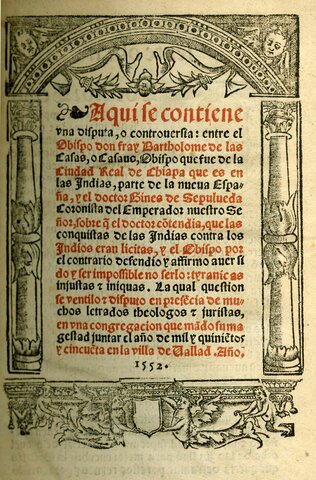 Aqui se contiene
vna disputa, o controuersia: entre el
Obispo don fray Bartholome de las
Casas, o Casaus, Obispo que fue de la
Ciudad Real de Chiapa que es en
las Indias, parte de la nueua Espa-
ña, y el doctor Gines de Sepulueda
Coronista del Emperador nuestro Se-
ñor, sobre q̃ el doctor cõtendia, que las
conquistas de las Indias contra los
Indios eran licitas, y el Obispo por
el contrario defendio y affirmo auer si
do y ser impossible no serlo: tyranicas
injustas & iniquas. La qual question
se ventilo & disputo en presẽcia de mu-
chos letrados theologos & juristas,
en vna congregacion que mãdo su ma
gestad juntar el año de mil y quiniẽtos
y cincuẽta en la villa de Vallad. Año.
1552.